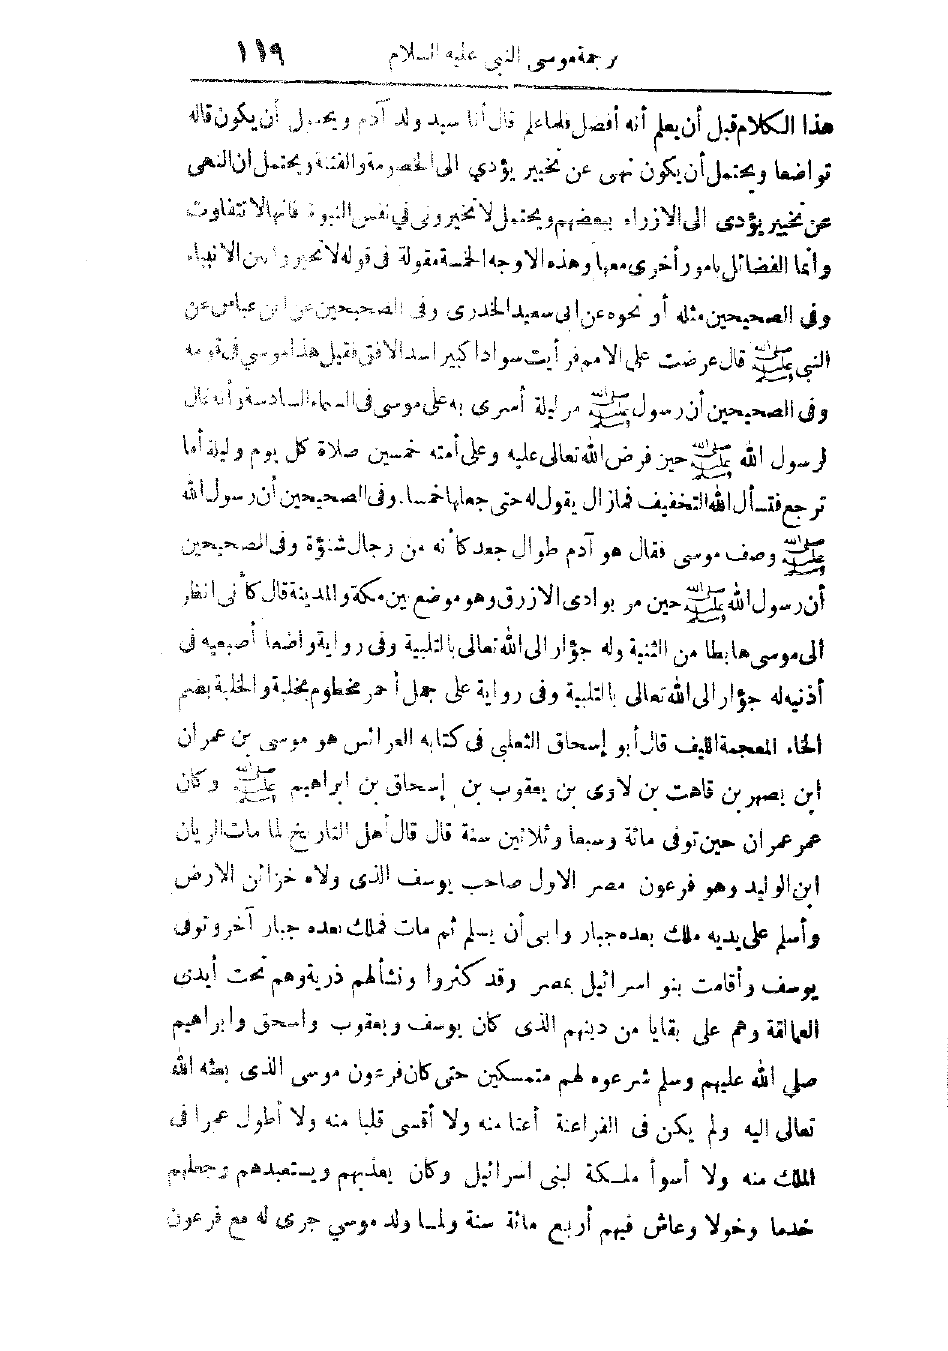 ترجمة موسى النبي عليه السلام ١١٩
هذا الكلام قبل أن يعلم أنه أفضل فلما علم قال أنا سيد ولد آدم ويحتمل أن يكون قاله
تواضعا ويحتمل أن يكون نهى عن تخيير يؤدي الى الخصومة والفتنة ويحتمل ان النهى
عن تخيير يؤدى الى الازراء ببعضهم ويحتمل لا تخيرونى في نفس النبوة فانها لا تتفاوت
وانما الفضائل بامور أخرى معها وهذه الاوجه الخمسة مقولة فى قوله لا تخيروا بين الانبياء
وفى الصحيحين مثله أو نحوه عن ابى سعيد الخدرى وفى الصحيحين عن ابن عباس عن
النبى ﷺ قال عرضت على الامم فرأيت سوادا كبيرا سد الافق فقيل هذا موسى فى قومه
وفى الصحيحين أن رسول ﷺ مر ليلة أسرى به على موسى فى السماء السادسة وأنه قال
لرسول الله ﷺ حين فرض الله تعالى عليه وعلى أمته خمسين صلاة كل يوم وليلة أما
ترجع فتسأل الله التخفيف فمازال يقول له حتى جعلها خمسا. وفى الصحيحين أن رسول الله
ﷺ وصف موسى فقال هو آدم طوال جعد كأنه من رجال شنؤة وفى الصحيحين
أن رسول الله ﷺ حين مر بوادى الازرق وهو موضع بين مكة والمدينة قال كأنى انظر
الى موسى هابطا من الثنية وله جؤار الى الله تعالى بالتلبية وفى رواية واضعا أصبعيه فى
أذنيه له جؤار الى الله تعالى بالتلبية وفى رواية على جمل أحمر مخطوم بخلبة والخلبة بضم
الخاء المعجمة الليف قال أبو إسحاق الثعلبى فى كتابه العرائس هو موسى بن عمران
ابن يصهر بن قاهت بن لاوى بن يعقوب بن إسحاق بن ابراهيم ﷺ وكان
عمر عمران حين توفى مائة وسبعا وثلاثين سنة قال قال أهل التاريخ لما مات الريان
ابن الوليد وهو فرعون مصر الاول صاحب يوسف الذى ولاه خزائن الارض
وأسلم على يديه ملك بعده جبار وابى أن يسلم ثم مات فملك بعده جبار آخر وتوفى
يوسف وأقامت بنو اسرائيل بمصر وقد كثروا ونشأ لهم ذرية وهم تحت أيدى
العمالقة وهم على بقايا من دينهم الذى كان يوسف ويعقوب واسحق وابراهيم
صلي الله عليهم وسلم شرعوه لهم متمسكين حتى كان فرعون موسى الذى بعثه الله
تعالى اليه ولم يكن فى الفراعنة أعتا منه ولا أقسى قلبا منه ولا أطول عمرا فى
الملك منه ولا أسوأ ملكة لبنى اسرائيل وكان يعذبهم ويستعبدهم وجعلهم
خدما وخولا وعاش فيهم أربع مائة سنة ولما ولد موسي جرى له مع فرعون